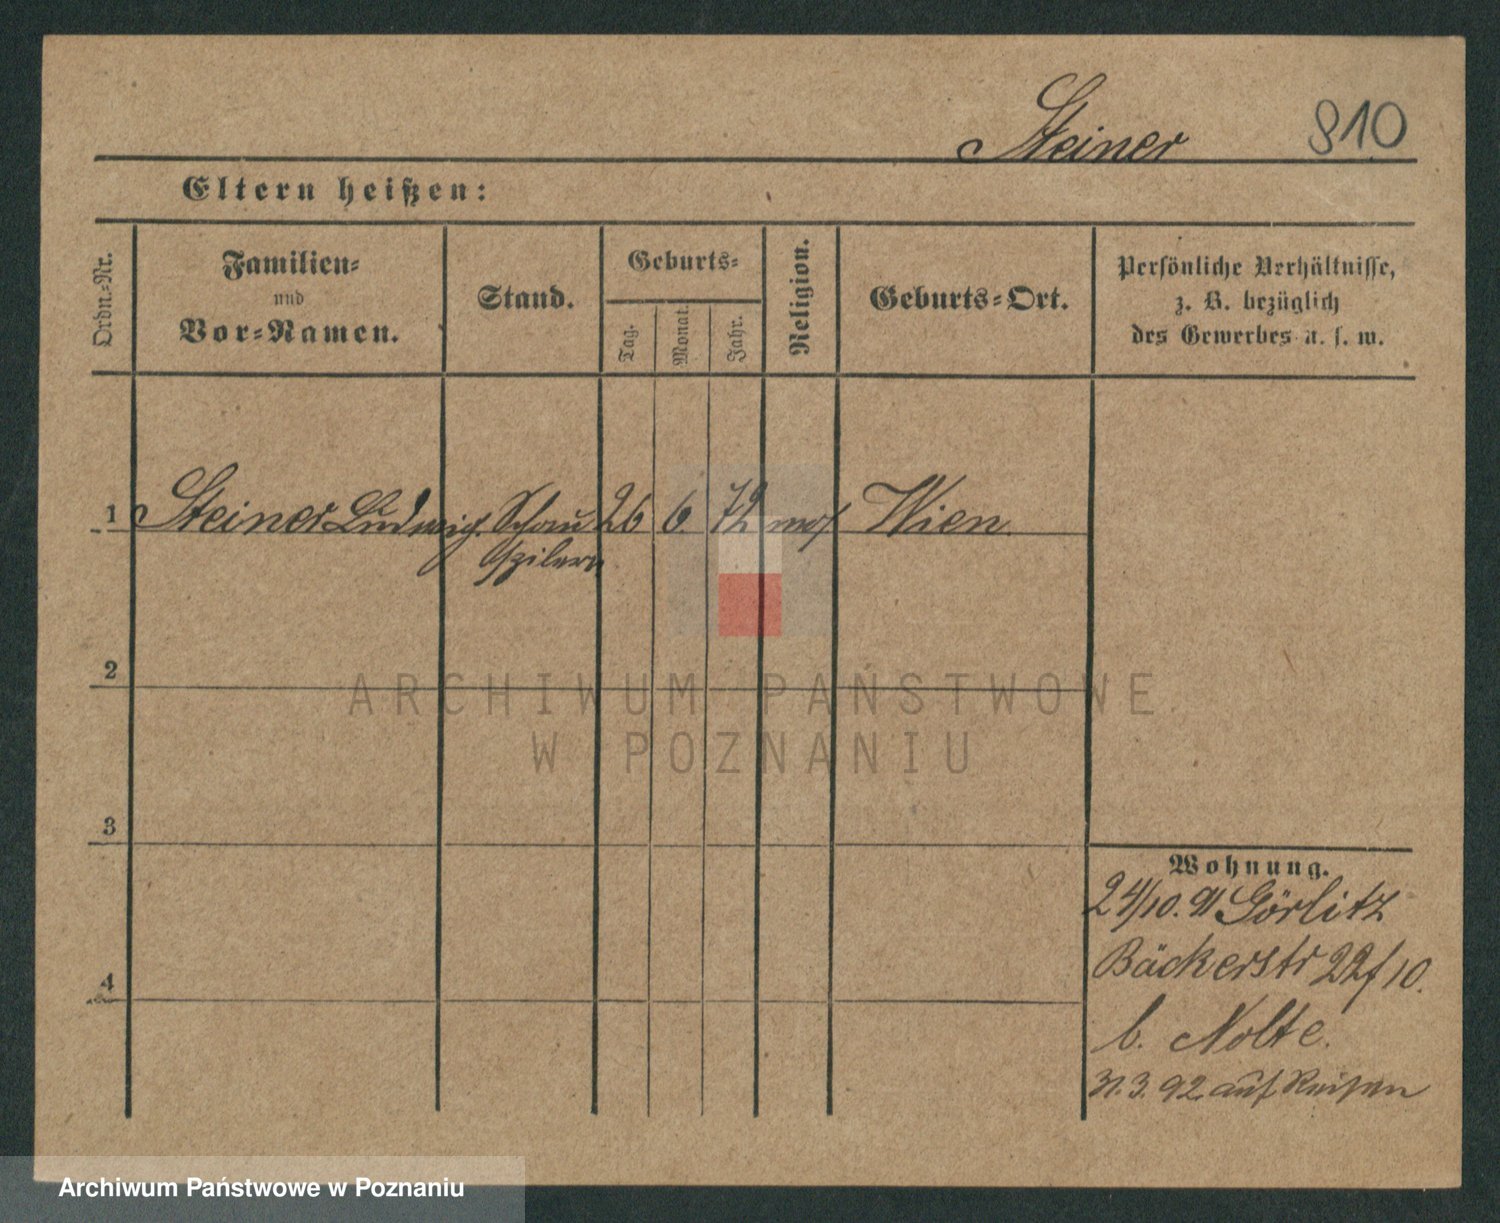 Steiner 810
Eltern heißen:
Ordn.-Nr.
Familien-
und
Vor-Namen.
Stand.
Geburts-
Tag.
Monat.
Jahr.
Religion.
Geburts-Ort.
Persönliche Verhältnisse,
z. B. bezüglich
des Gewerbes u. s. w.
1 Steiner Ludwig. Schau 26 6. 72 mos Wien.
spielern
2
3
4
Wohnung.
24/10. 91 Görlitz
Bäckerstr 22/10.
b. Nolte.
31.3.92 auf Reisen
ARCHIWUM PAŃSTWOWE
W POZNANIU
Archiwum Państwowe w Poznaniu